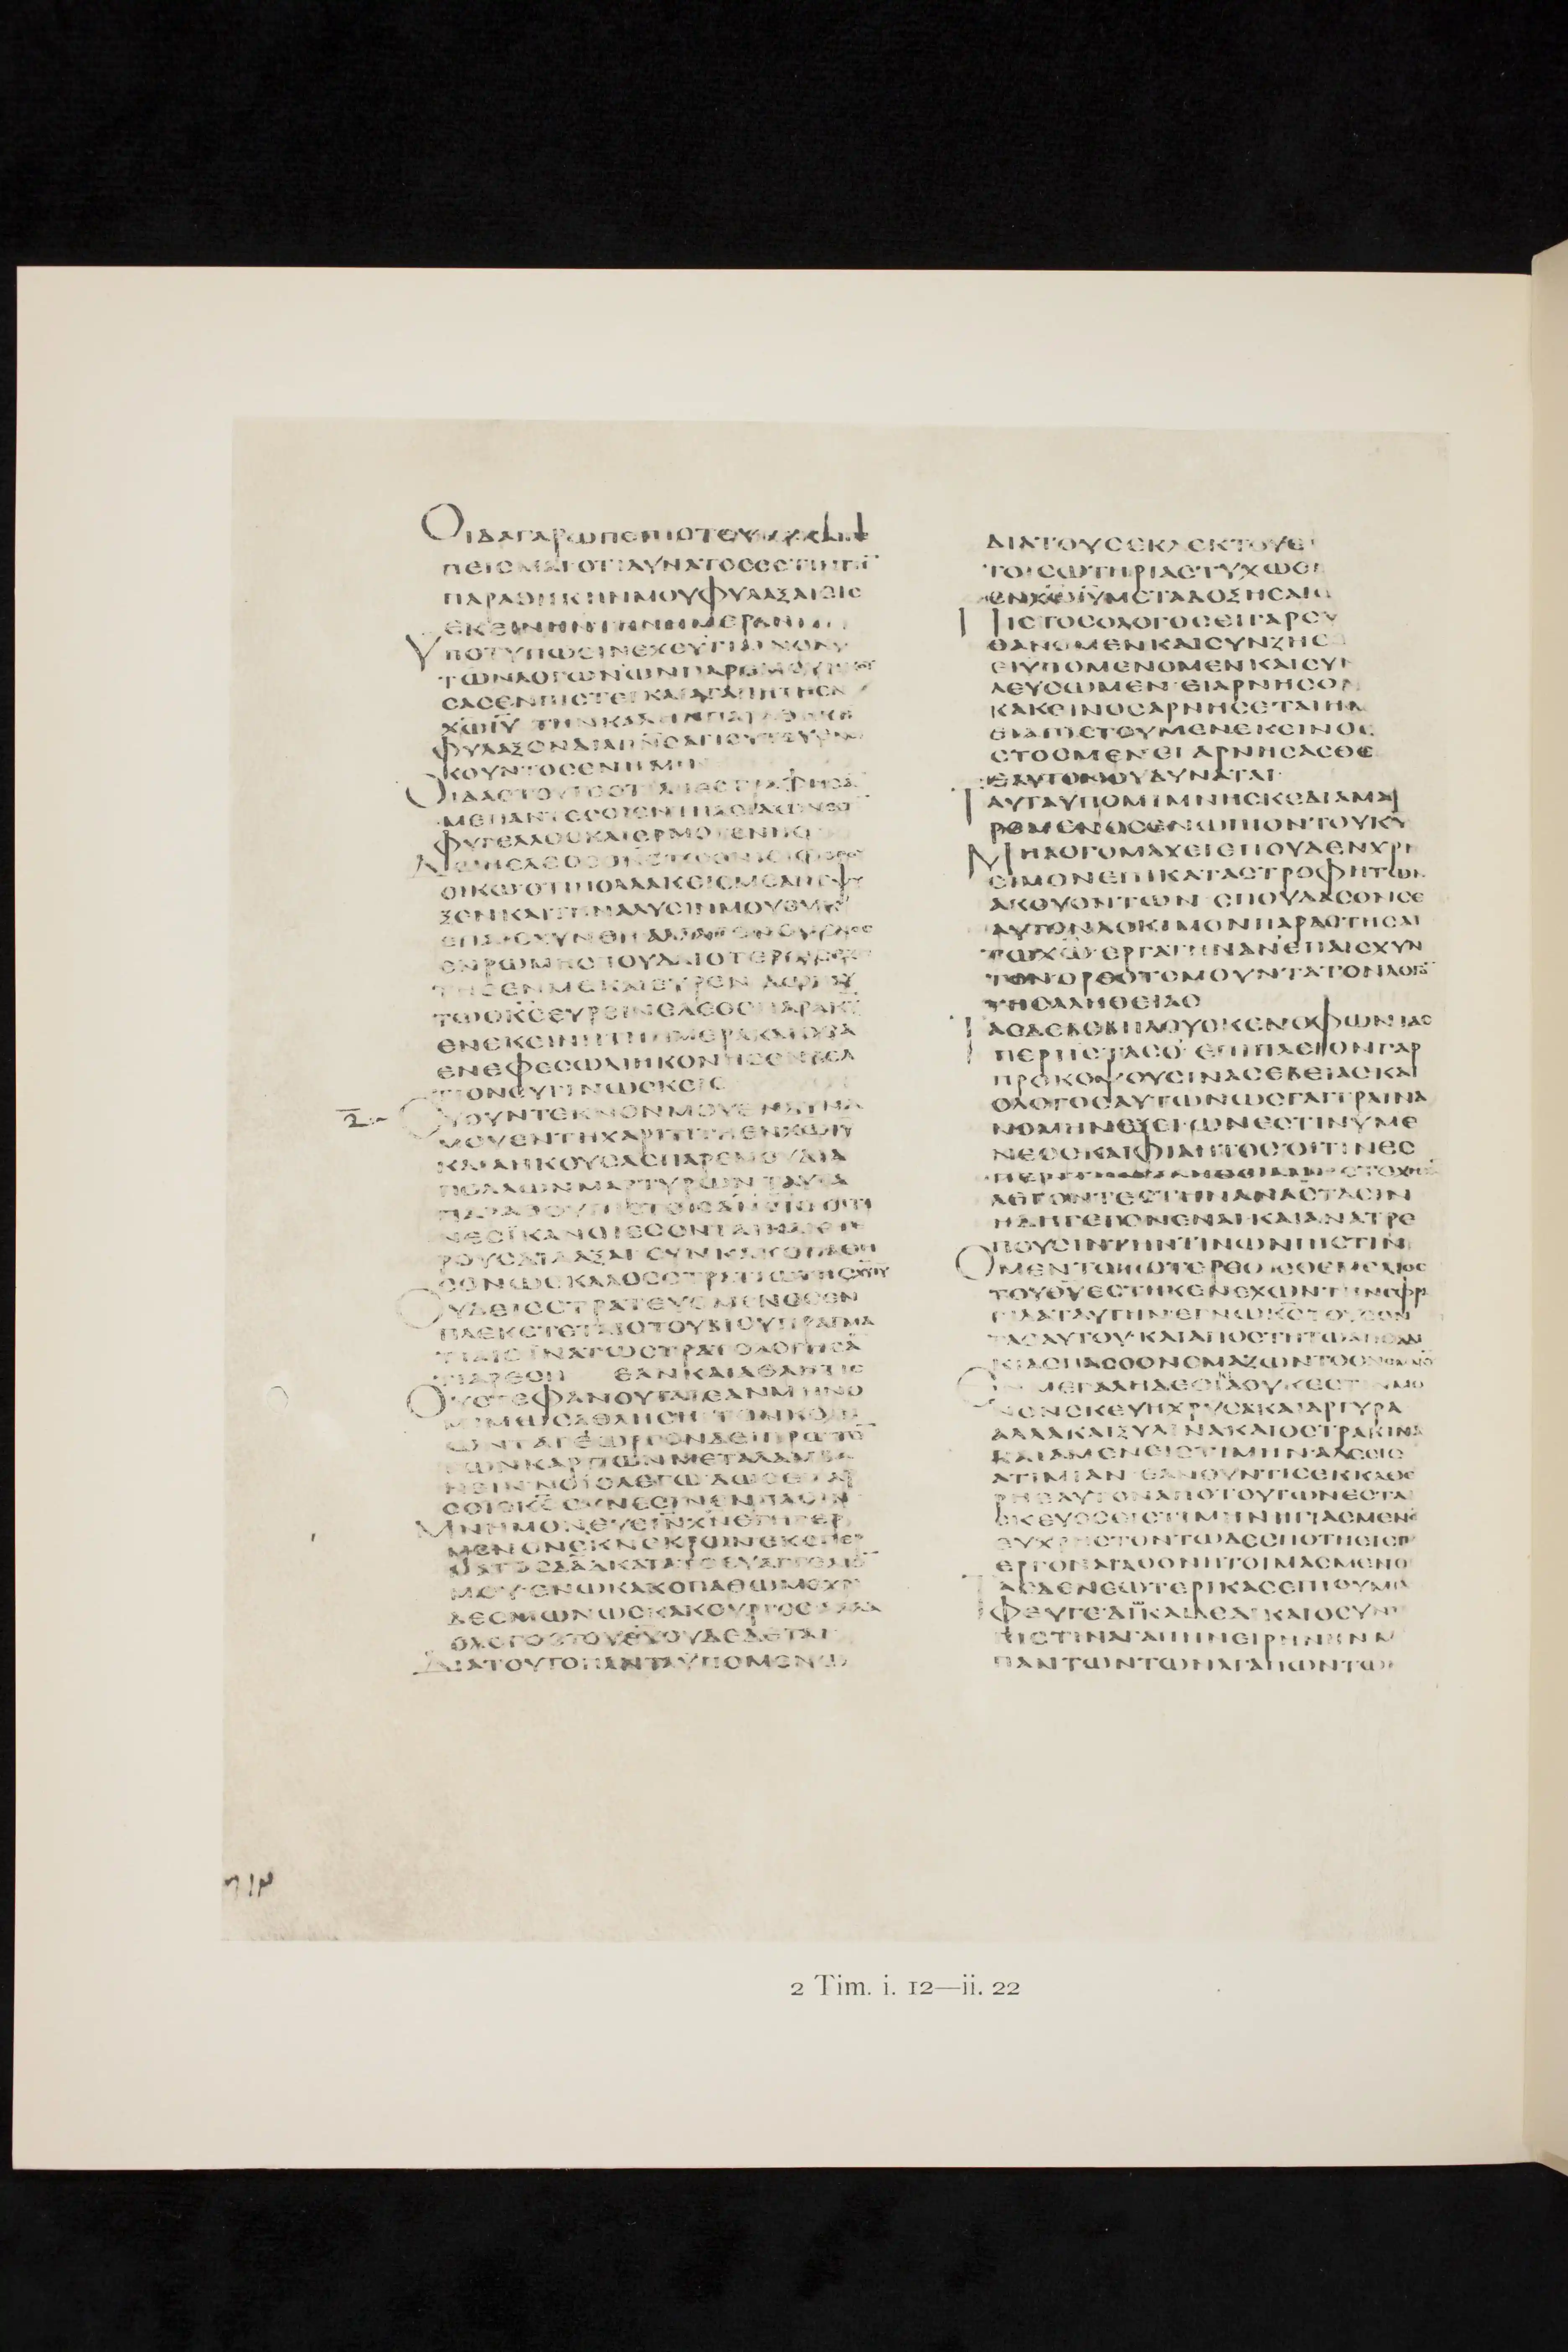 ΟΙΔΑΓΑΡΩΠΕΠΙΣΤΕΥΚΑΚΑΙ
ΠΕΙΣΜΑΙΟΤΙΔΥΝΑΤΟΣΕΣΤΙΝΤΗ̅
ΠΑΡΑΘΗΚΗΝΜΟΥΦΥΛΑΞΑΙΕΙΣ
ΕΚΕΙΝΗΝΤΗΝΗΜΕΡΑΝ
ΥΠΟΤΥΠΩΣΙΝΕΧΕΥΓΙΑΙΝΟΝ
ΤΩΝΛΟΓΩΝΩΝΠΑΡΕΜΟΥ
ΣΑΣΕΝΠΙΣΤΕΙΚΑΙΑΓΑΠΗΤΗΕΝ
ΧΩΙΥ ΤΗΝΚΑΛΗΝΠΑΡΑΘΗΚΗ
ΦΥΛΑΞΟΝΔΙΑΠΝΣΑΓΙΟΥΤΟΥΕΝΟΙ
ΚΟΥΝΤΟΣΕΝΗΜΙΝ
ΟΙΔΑΣΤΟΥΤΟΟΤΙΑΠΕΣΤΡΑΦΗΣΑ̅
ΜΕΠΑΝΤΕΣΟΙΕΝΤΗΑΣΙΑΩΝΕΣΤΙ
ΦΥΓΕΛΛΟΣΚΑΙΕΡΜΟΓΕΝΗΣ
ΟΙΚΩΟΤΙΠΟΛΛΑΚΙΣΜΕΑΝΕΨΥ
ΞΕΝΚΑΙΤΗΝΑΛΥΣΙΝΜΟΥΟΥΚ
ΕΝΡΩΜΗΣΠΟΥΔΑΙΟΤΕΡΩΣ
ΤΗΣΕΝΜΕΚΑΙΕΥΡΕΝ ΔΩΗΑΥ
ΤΩΟΚΣΕΥΡΕΙΝΕΛΕΟΣΠΑΡΑΚΥ
ΕΝΕΚΕΙΝΗΤΗΗΜΕΡΑΚΑΙΟΣΑ
ΕΝΕΦΕΣΩΔΙΗΚΟΝΗΣΕΝΒΕΛ
ΤΙΟΝΣΥΓΙΝΩΣΚΕΙΣ
ΣΥΟΥΝΤΕΚΝΟΝΜΟΥΕΝΔΥΝΑ
ΜΟΥΕΝΤΗΧΑΡΙΤΙΤΗΕΝΧΩΙΥ
ΚΑΙΑΗΚΟΥΣΑΣΠΑΡΕΜΟΥΔΙΑ
ΠΟΛΛΩΝΜΑΡΤΥΡΩΝ ΤΑΥΤΑ
ΠΑΡΑΘΟΥΠΙΣΤΟΙΣΑΝΟΙΣ ΟΙΤΙ
ΝΕΣΙΚΑΝΟΙΕΣΟΝΤΑΙΚΑΙΕΤΕ
ΡΟΥΣΔΙΔΑΞΑΙ ΣΥΝΚΑΚΟΠΑΘΗ
ΣΟΝΩΣΚΑΛΟΣΣΤΡΑΤΙΩΤΗΣΧΥΙΥ
ΟΥΔΕΙΣΣΤΡΑΤΕΥΟΜΕΝΟΣΕΝ
ΠΛΕΚΕΤΕΤΑΙΣΤΟΥΒΙΟΥΠΡΑΓΜΑ
ΤΙΑΙΣΙΝΑΤΩΣΤΡΑΤΟΛΟΓΗΣΑ̅
ΤΙΑΡΕΣΗ ΕΑΝΚΑΙΑΘΛΗΤΙΣ
ΟΥΣΤΕΦΑΝΟΥΤΑΙΕΑΝΜΗΝΟ
ΜΙΜΩΣΑΘΛΗΣΗ ΤΟΝΚΟΠΙ
ΩΝΤΑΓΕΩΡΓΟΝΔΕΙΠΡΩΤΟ̅
ΤΩΝΚΑΡΠΩΝΜΕΤΑΛΑΜΒΑ
ΝΕΙΝ ΝΟΕΙΟΛΕΓΩ ΔΩΣΕΙΓΑΡ
ΣΟΙΟΚΣ ΣΥΝΕΣΙΝΕΝΠΑΣΙΝ
ΜΝΗΜΟΝΕΥΕΙΝΧΝΕΓΗΓΕΡ
ΜΕΝΟΝΕΚΝΕΚΡΩΝΕΚΣΠΕΡ
ΜΑΤΟΣΔΑΔΚΑΤΑΤΟΕΥΑΓΓΕΛΙΟ̅
ΜΟΥΕΝΩΚΑΚΟΠΑΘΩΜΕΧΡΙ
ΔΕΣΜΩΝΩΣΚΑΚΟΥΡΓΟΣΑΛΛΑ
ΟΛΟΓΟΣΤΟΥΘΥΟΥΔΕΔΕΤΑΙ
ΔΙΑΤΟΥΤΟΠΑΝΤΑΥΠΟΜΕΝΩ
ΔΙΑΤΟΥΣΕΚΛΕΚΤΟΥΣ
ΤΟΙΣΩΤΗΡΙΑΣΤΥΧΩΣΙ
ΕΝΧΩΙΥΜΕΤΑΔΟΞΗΣΑΙΩ
ΠΙΣΤΟΣΟΛΟΓΟΣΕΙΓΑΡΣΥ
ΘΑΝΟΜΕΝΚΑΙΣΥΝΖΗΣΟ
ΕΙΥΠΟΜΕΝΟΜΕΝΚΑΙΣΥ
ΛΕΥΣΩΜΕΝ ΕΙΑΡΝΗΣΟ
ΚΑΚΕΙΝΟΣΑΡΝΗΣΕΤΑΙΗΜ
ΕΙΑΠΙΣΤΟΥΜΕΝΕΚΕΙΝΟΣ
ΣΤΟΣΜΕΝΕΙ ΑΡΝΗΣΑΣΘΕ
ΕΑΥΤΟΝΟΥΔΥΝΑΤΑΙ
ΤΑΥΤΑΥΠΟΜΙΜΝΗΣΚΕΔΙΑΜΑΡ
ΡΟΜΕΝΟΣΕΝΩΠΙΟΝΤΟΥΚΥ
ΜΗΛΟΓΟΜΑΧΕΙΕΠΟΥΔΕΝΧΡΗ
ΣΙΜΟΝΕΠΙΚΑΤΑΣΤΡΟΦΗΤΩΝ
ΑΚΟΥΟΝΤΩΝ ΣΠΟΥΔΑΣΟΝΣΕ
ΑΥΤΟΝΔΟΚΙΜΟΝΠΑΡΑΣΤΗΣΑΙ
ΤΩΧΩΕΡΓΑΤΗΝΑΝΕΠΑΙΣΧΥΝ
ΤΟΝΟΡΘΟΤΟΜΟΥΝΤΑΤΟΝΛΟΓΟ̅
ΤΗΣΑΛΗΘΕΙΑΣ
ΠΕΡΙΙΣΤΑΣΟ ΕΠΙΠΛΕΙΟΝΓΑΡ
ΠΡΟΚΟΨΟΥΣΙΝΑΣΕΒΕΙΑΣΚΑΙ
ΟΛΟΓΟΣΑΥΤΩΝΩΣΓΑΓΓΡΑΙΝΑ
ΝΟΜΗΝΕΞΕΙΩΝΕΣΤΙΝΥΜΕ
ΝΕΟΣΚΑΙΦΙΛΗΤΟΣ ΟΙΤΙΝΕΣ
ΠΕΡΙΤΗΝΑΛΗΘΕΙΑΝΗΣΤΟΧΗΣΑ̅
ΛΕΓΟΝΤΕΣΤΗΝΑΝΑΣΤΑΣΙΝ
ΗΔΗΓΕΓΟΝΕΝΑΙΚΑΙΑΝΑΤΡΕ
ΠΟΥΣΙΝΤΗΝΤΙΝΩΝΠΙΣΤΙΝ
ΟΜΕΝΤΟΙΣΤΕΡΕΟΣΘΕΜΕΛΙΟΣ
ΤΟΥΘΥΕΣΤΗΚΕΝΕΧΩΝΤΗΝΣΦΡ
ΓΙΔΑΤΑΥΤΗΝΕΓΝΩΚΣΤΟΥΣΟΝ
ΤΑΣΑΥΤΟΥ ΚΑΙΑΠΟΣΤΗΤΩΑΠΟΑΔΙ
ΚΙΑΣΠΑΣΟΟΝΟΜΑΖΩΝΤΟΟΝΟΜΑ
ΝΟΝΣΚΕΥΗΧΡΥΣΑΚΑΙΑΡΓΥΡΑ
ΑΛΛΑΚΑΙΞΥΛΙΝΑΚΑΙΟΣΤΡΑΚΙΝΑ
ΚΑΙΑΜΕΝΕΙΣΤΙΜΗΝΑΔΕΕΙΣ
ΑΤΙΜΙΑΝ ΕΑΝΟΥΝΤΙΣΕΚΚΑΘΑ
ΡΗΕΑΥΤΟΝΑΠΟΤΟΥΤΩΝΕΣΤΑΙ
ΣΚΕΥΟΣΕΙΣΤΙΜΗΝΗΓΙΑΣΜΕΝΟ
ΕΥΧΡΗΣΤΟΝΤΩΔΕΣΠΟΤΗΕΙΣΠ
ΕΡΓΟΝΑΓΑΘΟΝΗΤΟΙΜΑΣΜΕΝΟ
ΤΑΣΔΕΝΕΩΤΕΡΙΚΑΣΕΠΙΘΥΜΙΑ
ΦΕΥΓΕΔΙΚΑΙΔΕΔΙΚΑΙΟΣΥΝ
ΠΙΣΤΙΝΑΓΑΠΗΝΕΙΡΗΝΗΝΜ
ΠΑΝΤΩΝΤΩΝΑΓΑΠΩΝΤΩ
2 Tim. i. 12—ii. 22